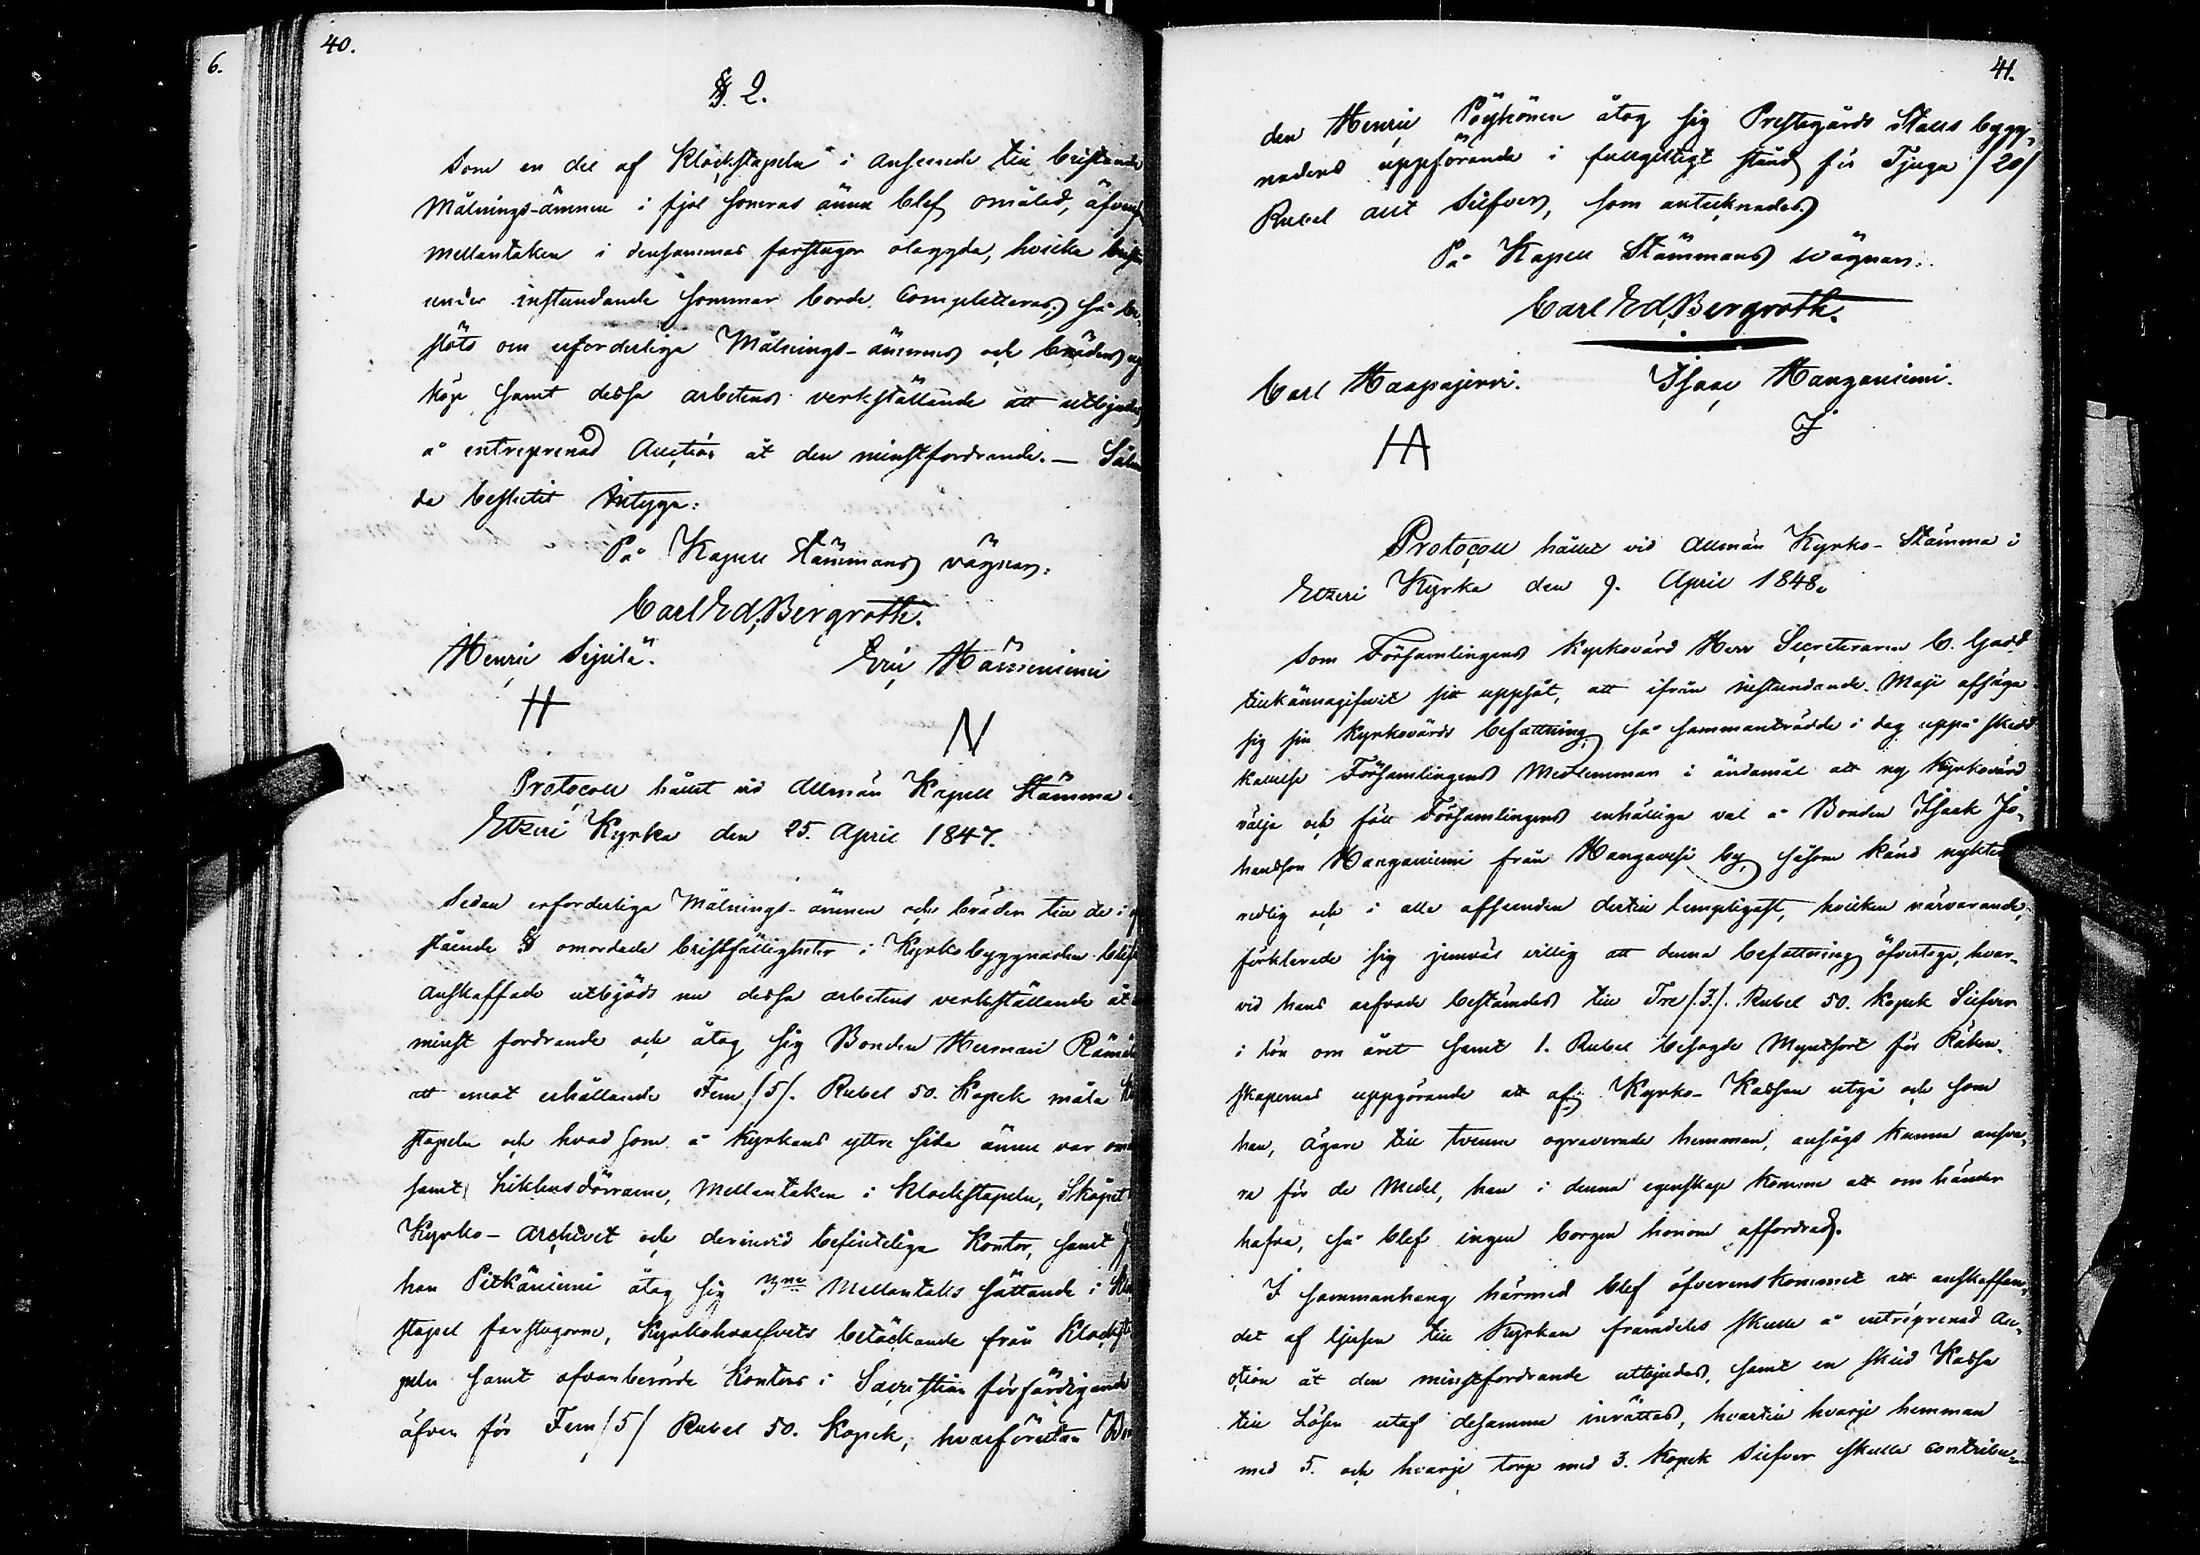 6.
40.
§. 2.
Som en del af Klockstapeln i anseende till bristande
Målnings-ämnen i fjol somras ännu blef omålad, äfvens
mellantaken i densammas farstugor olaggda, hvilka brist
under instundande sommar borde completteras; så be-
slöts om erforderliga Målnings-ämnens och bräders up
köp samt dessa arbetens verkställande att utbjudas
å entreprenad Auction åt den minstfordrande. — Sålun
da beslutit Intyga:
På Kapell Stämmans vägnar:
Carl Ed. Bergroth.
Henric Sipilä. Eric Hännieniemi
H
N
Protocoll hållet vid Allmän Kapell Stämma i
Etzeri Kyrka den 25. April 1847.
Sedan erforderliga Målnings-ämnen och bräder till de i
stående § omordade bristfälligheter i Kyrkobyggnaden blifv
anskaffade utbjöds nu dessa arbetens verkställande åt
minst fordrande och åtog sig Bonden Herman
att emot erhållande Fem /5/. Rubel 50. Kopek måla Klo
stapeln och hvad som å Kyrkans yttre sida ännu var om
samt likhusdörrarne, Mellantaken i Klockstapeln, Skåpet
Kyrko-Archivet och derinvid befintliga Kontor, samt J
han Pitkäniemi åtog sig 3ne Mellantaks sättande i Klo
stapel farstugorne, Kyrkohvalfvets betäckande från Klockst
peln samt ofvanberörde Kontors i Sacristian förfärdigande
äfven för Fem /5/ Rubel 50. Kopek, hvarförutan Bon
41.
den Henric Pöyhönen åtog sig Prestegårds Stalls bygg-
nadens uppförande i fullgiltigt stånd för Tjuga /20/
Rubel allt Silfver, som antecknades.
På Kapell Stämmans wägnar:
Carl Ed. Bergroth.
Carl Haapajärvi. Isaac Hanganiemi.
HA
I
Protocoll hållet vid Allmän Kyrko-Stämma i
Etzeri Kyrka den 9. April 1848.
Som Församlingens Kyrkovärd Herr Secreteraren C. Gadd
tillkännagifvit sitt uppsåt, att ifrån instundande Maji afsäga
sig sin Kyrkovärds befattning; så sammanträdde i dag uppå skedd
kallelse Församlingens Medlemmar i ändamål att ny Kyrkovärd
välja och föll Församlingens enhälliga val å Bonden Isaak Jo-
hansson Hanganiemi från Hangavesi by, såsom känd nykter
redlig och i alla afseenden dertill lämpligast, hvilken närvarande,
förklarade sig jemväl villig att denna befattning öfvertaga, hvar-
vid hans arfvode bestämdes till Tre /.3./. Rubel 50. Kopek Silfver
i lön om året samt 1. Rubel besagde Myntsort för Räken-
skapernes uppgörande att af Kyrko-Kassan utgå och som
han, ägare till tvenne ograverade hemman, ansågs kunna ansva-
ra för de Medel, han i denna egenskap komme att om händer
hafva, så blef ingen borgen honom affordrad.
I sammanhang härmed blef öfverenskommet att anskaffan-
det af ljusen till Kyrkan framdeles skulle å entreprenad Au-
ction åt den minstfordrande utbjudas, samt en skild Kassa
till Lösen utaf desamma inrättas, hvartill hvarje hemman
med 5. och hvarje torp med 3. Kopek Silfver skulle contribu-